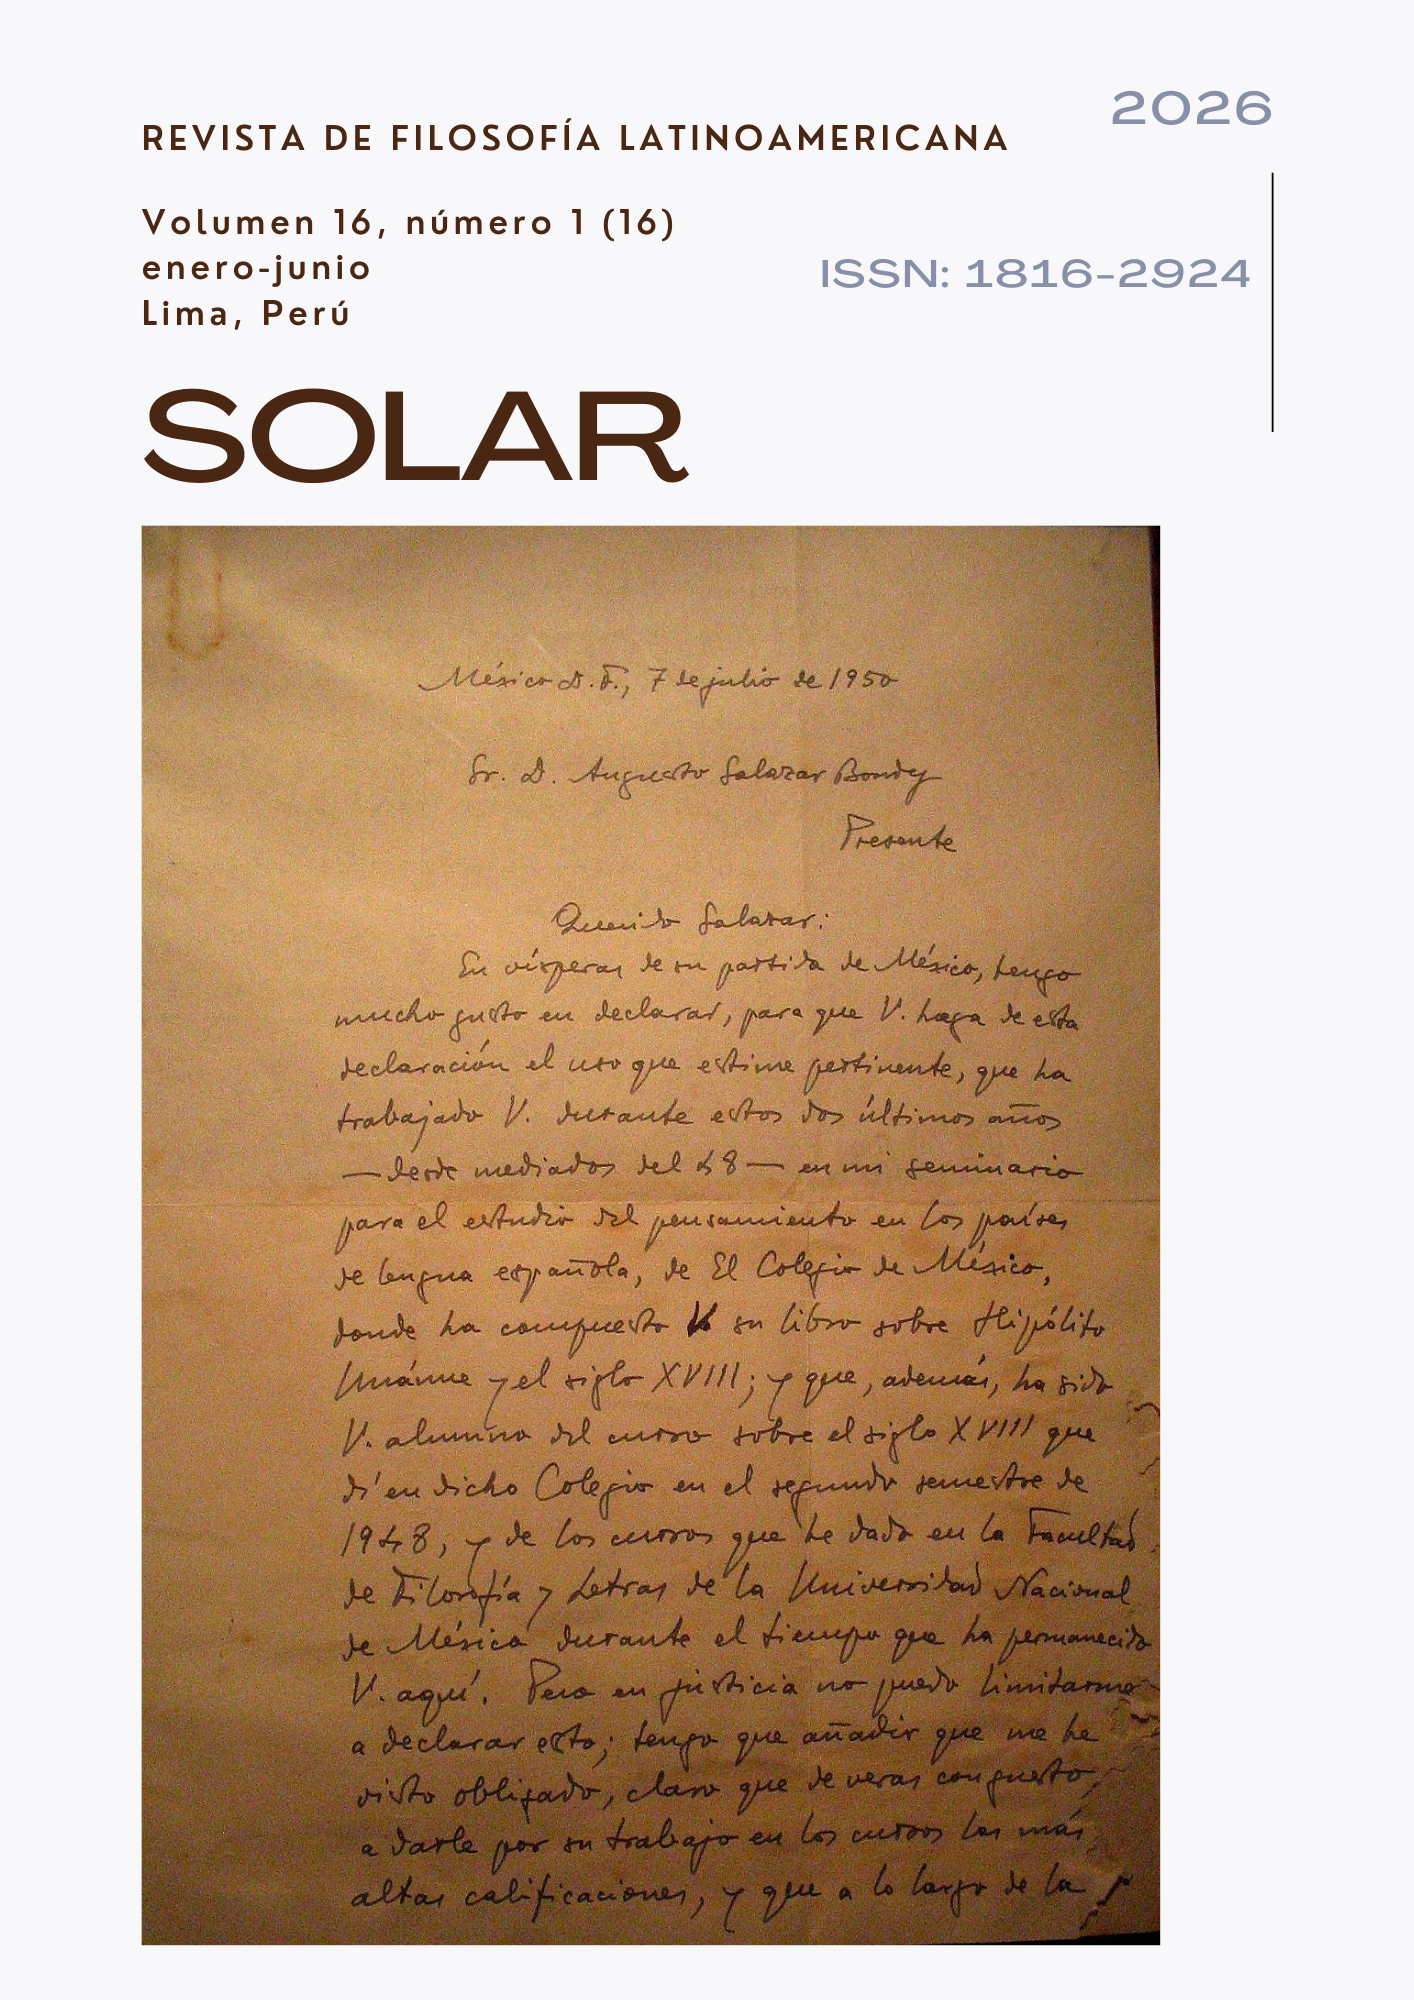 2026
REVISTA DE FILOSOFÍA LATINOAMERICANA
Volumen 16, número 1 (16)
enero-junio
Lima, Perú
ISSN: 1816-2924
SOLAR
México D.F., 7 de julio de 1950
Sr. D. Augusto Salazar Bondy
Presente
Querido Salazar:
En vísperas de su partida de México, tengo
mucho gusto en declarar, para que V. haga de esta
declaración el uso que estime pertinente, que ha
trabajado V. durante estos dos últimos años
—desde mediados del 48— en mi seminario
para el estudio del pensamiento en los países
de lengua española, de El Colegio de México,
donde ha compuesto V. su libro sobre Hipólito
Unánue y el siglo XVIII; y que, además, ha sido
V. alumno del curso sobre el siglo XVIII que
dí en dicho Colegio en el segundo semestre de
1948, y de los cursos que he dado en la Facultad
de Filosofía y Letras de la Universidad Nacional
de México durante el tiempo que ha permanecido
V. aquí. Pero en justicia no puedo limitarme
a declarar esto; tengo que añadir que me he
visto obligado, claro que de veras con gusto,
a darle por su trabajo en los cursos las más
altas calificaciones, y que a lo largo de la